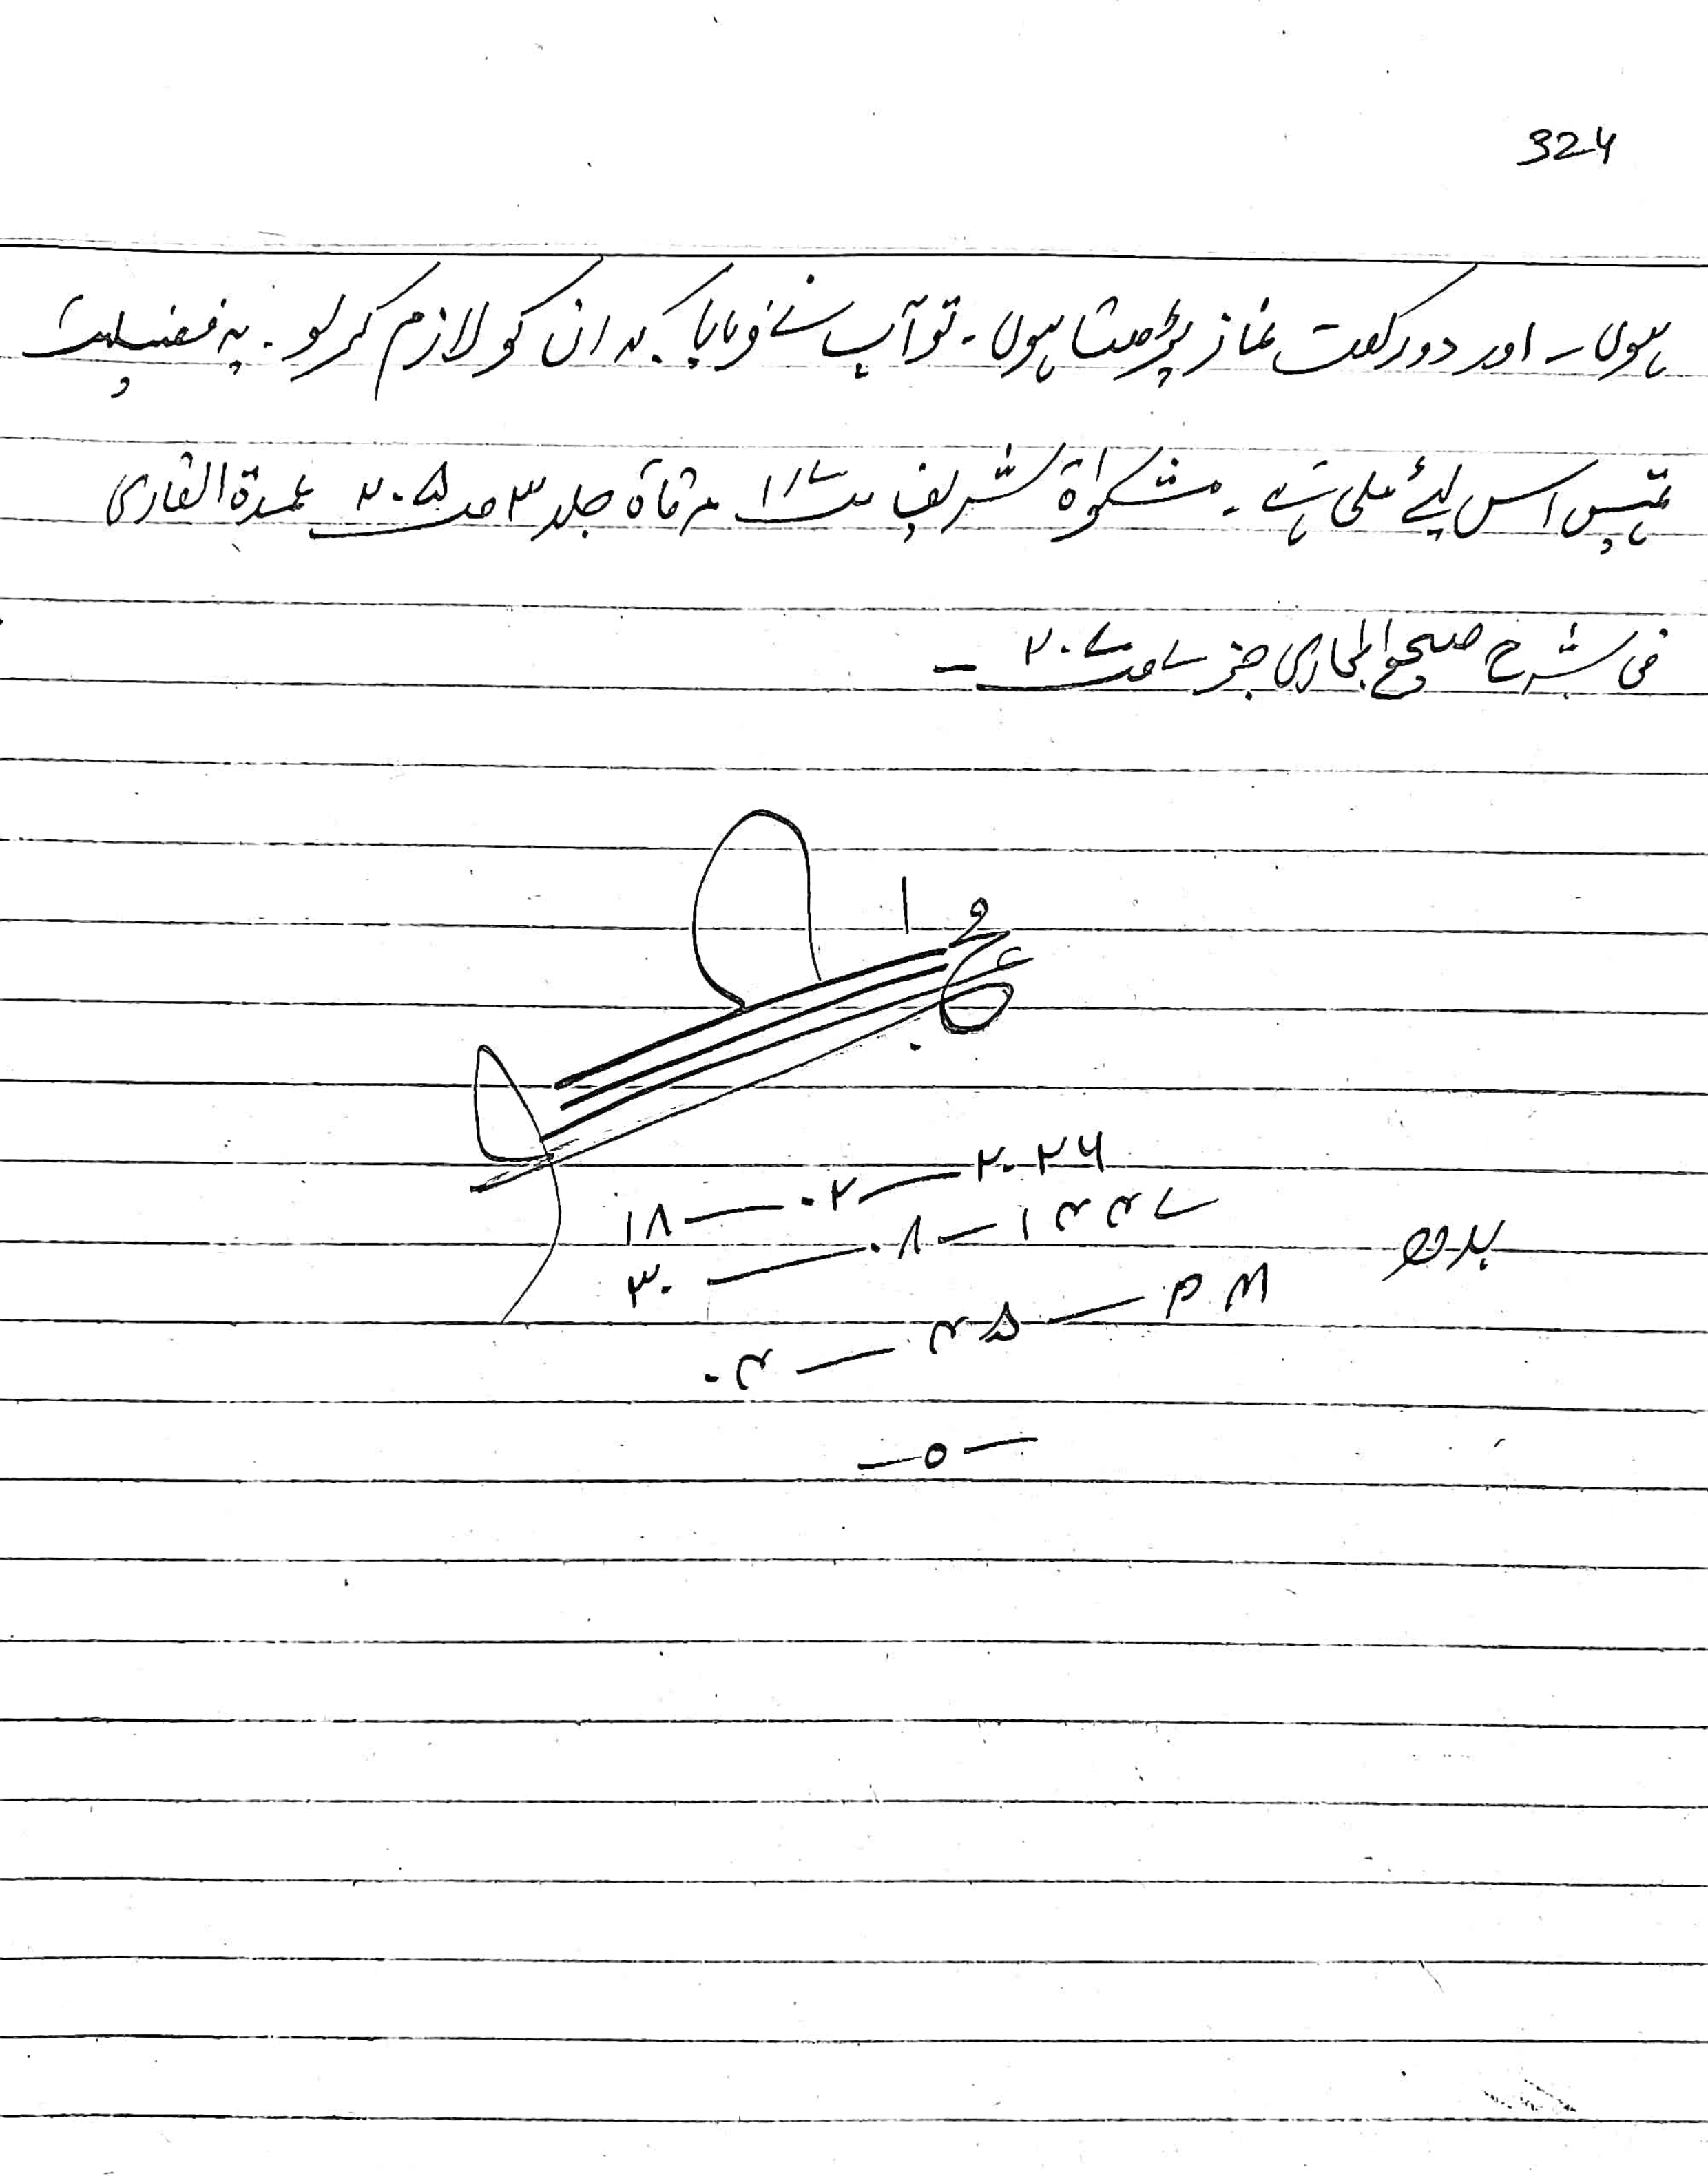 324
ہوں۔ اور دو رکعت نماز پڑھتا ہوں۔ تو آپ نے فرمایا کہ ان کو لازم کر لو۔ یہ فضیلت
تمہیں اس لئے ملی ہے۔ مشکوٰۃ شریف ص۱۱۷ مرقاۃ جلد ۳ ص۲۰۵ عمدۃ القاری
فی شرح صحیح البخاری جز ۷ ص۲۰۷ —
۱۸ — ۰۲ — ۲۰۲۶
بدھ ۳۰ — ۰۸ — ۱۴۴۷
۰۴ — ۴۵ — PM
—o—